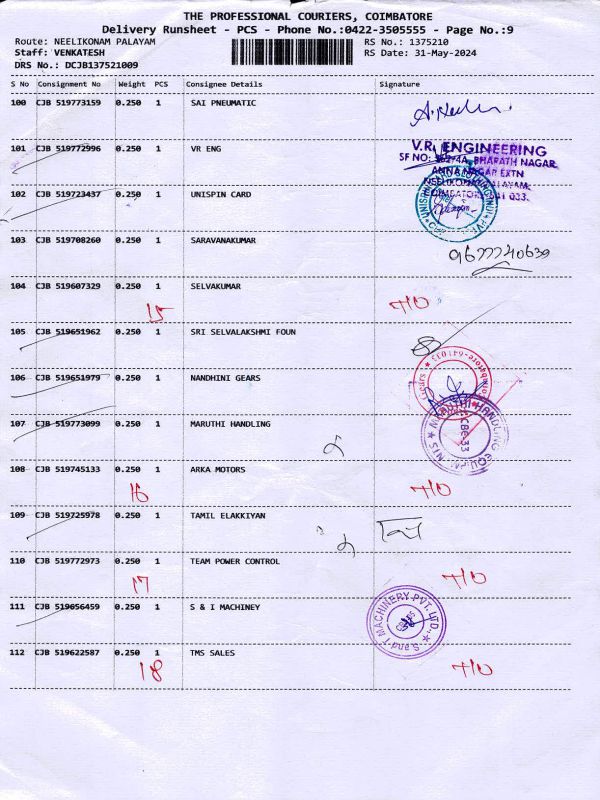 THE PROFESSIONAL COURIERS, COIMBATORE
Delivery Runsheet - PCS - Phone No.:0422-3505555 - Page No.:9
Route: NEELIKONAM PALAYAM RS No.: 1375210
Staff: VENKATESH RS Date: 31-May-2024
DRS No.: DCJB137521009
S No Consignment No Weight PCS Consignee Details Signature
100 CJB 519773159 0.250 1 SAI PNEUMATIC
101 CJB 519772996 0.250 1 VR ENG
V.R. ENGINEERING
SF NO: BHARATH NAGAR
ANNA NAGAR EXTN
102 CJB 519723437 0.250 1 UNISPIN CARD
103 CJB 519708260 0.250 1 SARAVANAKUMAR
104 CJB 519607329 0.250 1 SELVAKUMAR
15 T/O
105 CJB 519651962 0.250 1 SRI SELVALAKSHMI FOUN
106 CJB 519651979 0.250 1 NANDHINI GEARS
107 CJB 519773099 0.250 1 MARUTHI HANDLING
108 CJB 519745133 0.250 1 ARKA MOTORS
16 T/O
109 CJB 519725978 0.250 1 TAMIL ELAKKIYAN
110 CJB 519772973 0.250 1 TEAM POWER CONTROL
17 T/O
111 CJB 519056459 0.250 1 S & I MACHINEY
S and I MACHINERY PVT. LTD.,
112 CJB 519622587 0.250 1 TMS SALES
18 T/O